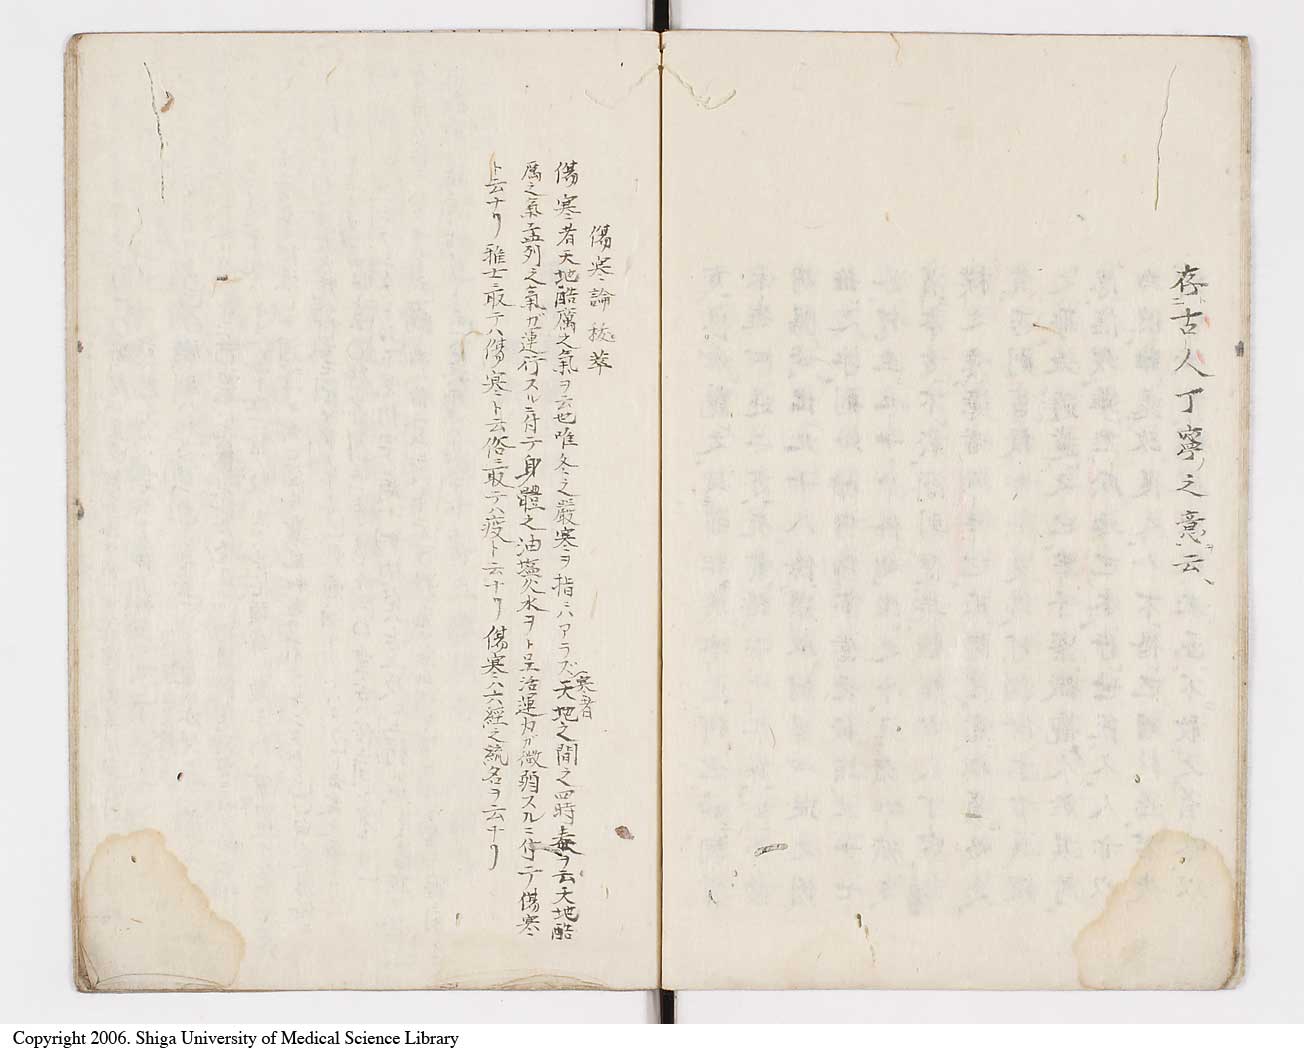 存古人丁寧之意云、
傷寒論抜萃
傷寒者天地酷厲之氣ヲ云也唯冬之嚴寒ヲ指ニハアラズ天地之間之四時毒ヲ云天地酷
寒者
厲之氣孟列之氣ガ運行スルニ付テ身體之油鹽火水ヲト呈活運力ガ微弱スルニ付テ傷寒
ト云ナリ雅士ニ取テハ傷寒ト云俗ニ取テハ疫ト云ナリ傷寒ハ六經之統名ヲ云ナリ
Copyright 2006. Shiga University of Medical Science Library